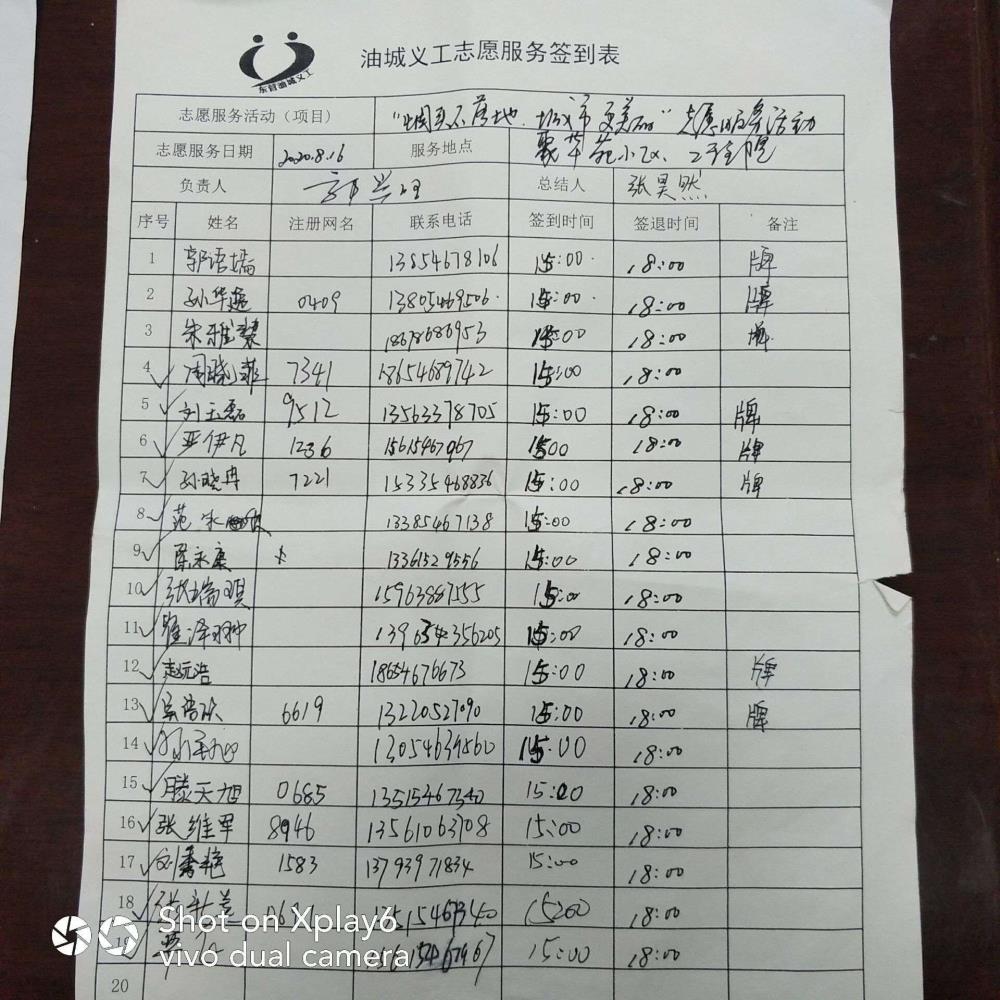 东营油城义工
油城义工志愿服务签到表
志愿服务活动（项目） "烟头不落地，城市更美丽"志愿服务活动
志愿服务日期 2020.8.16 服务地点 聚华苑小区、
负责人 总结人 张昊然
序号 姓名 注册网名 联系电话 签到时间 签退时间 备注
1 郭语嫣 13854678106 15:00 18:00 牌
2 孙华超 0409 13805469506 15:00 18:00 牌
3 朱雅 18678686953 15:00 18:00
4 周晓菲 7341 18654689742 15:00 18:00
5 刘玉磊 9512 13563378705 15:00 18:00 牌
6 亚伊凡 1236 15615467967 1500 18:00 牌
7 孙晓冉 7221 15335468836 15:00 18:00 牌
8 范 13385467138 15:00 18:00
9 陈永康 13361529556 15:00 18:00
10 张瑞琪 15963887555 15:00 18:00
11 崔泽翀 15:00 18:00
12 赵沅浩 18654676673 15:00 18:00 牌
13 6619 13220527090 15:00 18:00 牌
14 13054639560 15:00 18:00
15 滕天旭 0685 13515467340 15:00 18:00
16 张维军 8946 13561063708 15:00 18:00
17 刘 1583 13793971834 15:00 18:00
18 13515467340 1500 18:00
19 15:00 18:00
20
Shot on Xplay6
vivo dual camera